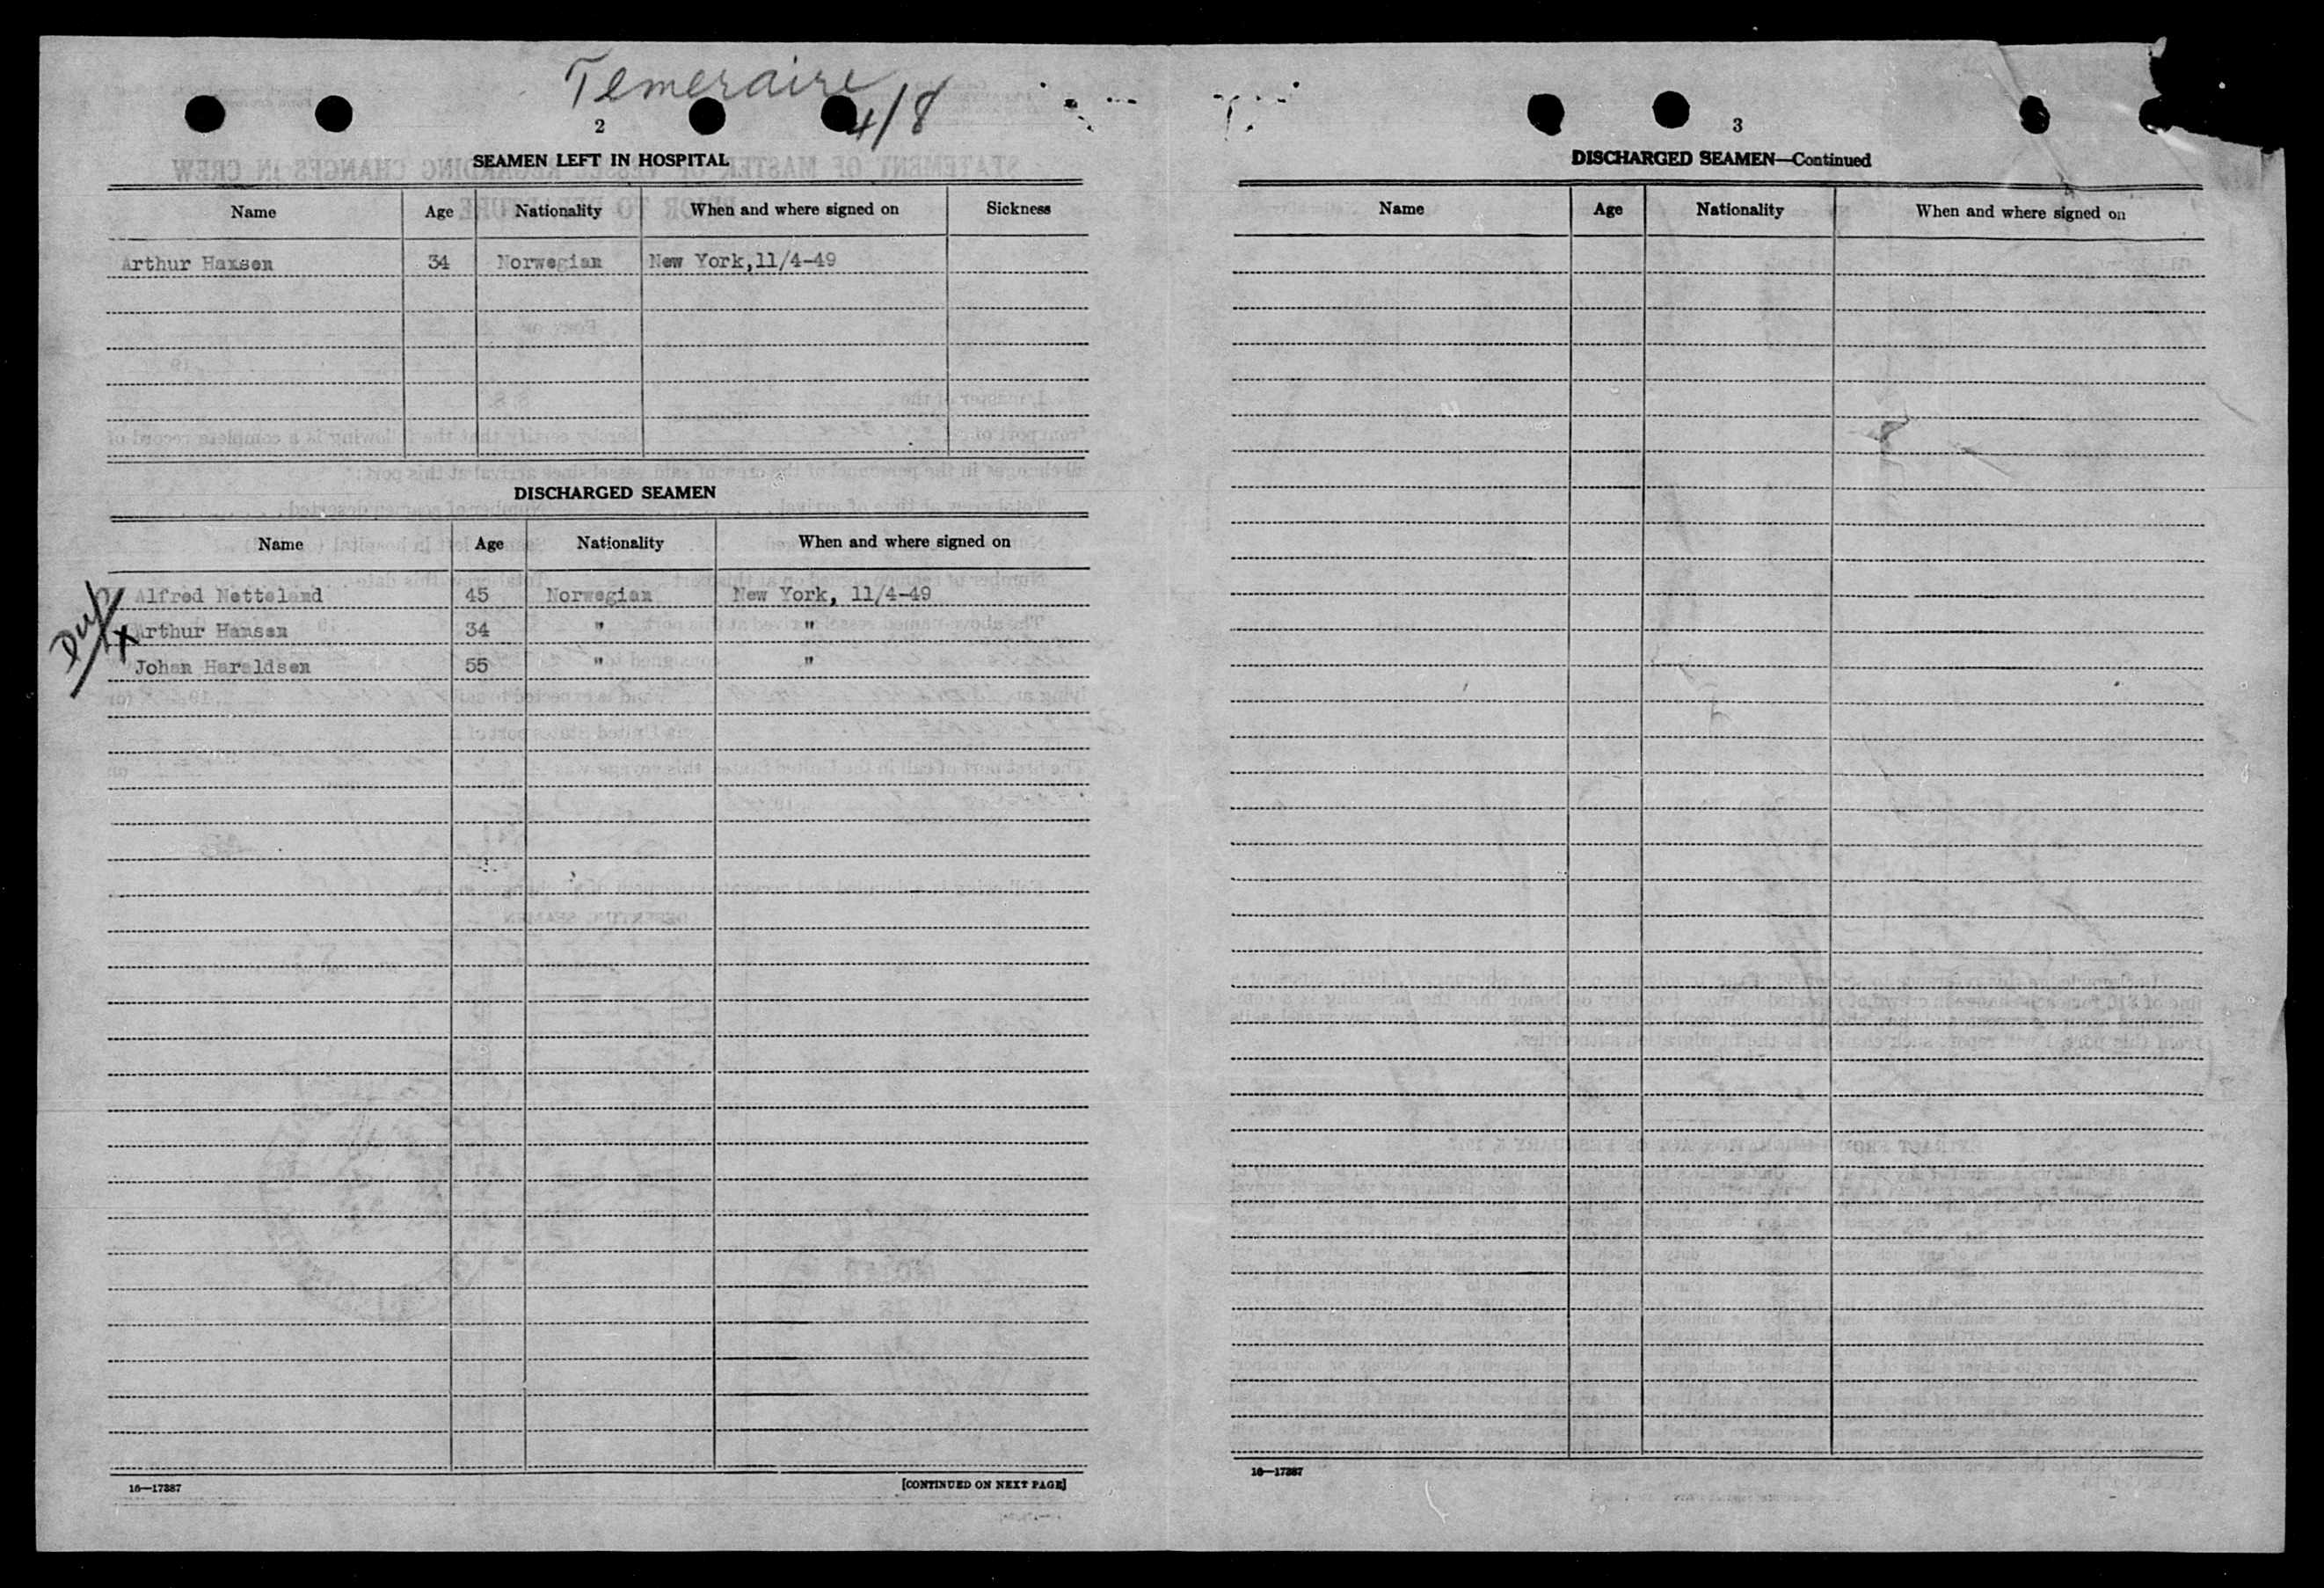 Temeraire
4/8
2
SEAMEN LEFT IN HOSPITAL
Name Age Nationality When and where signed on Sickness
Arthur Hansen 34 Norwegian New York,11/4-49
DISCHARGED SEAMEN
Name Age Nationality When and where signed on
Alfred Netteland 45 Norwegian New York, 11/4-49
Arthur Hansen 34 " "
Johan Haraldsen 55 " "
16—17387 [CONTINUED ON NEXT PAGE]
3
DISCHARGED SEAMEN—Continued
Name Age Nationality When and where signed on
16—17387